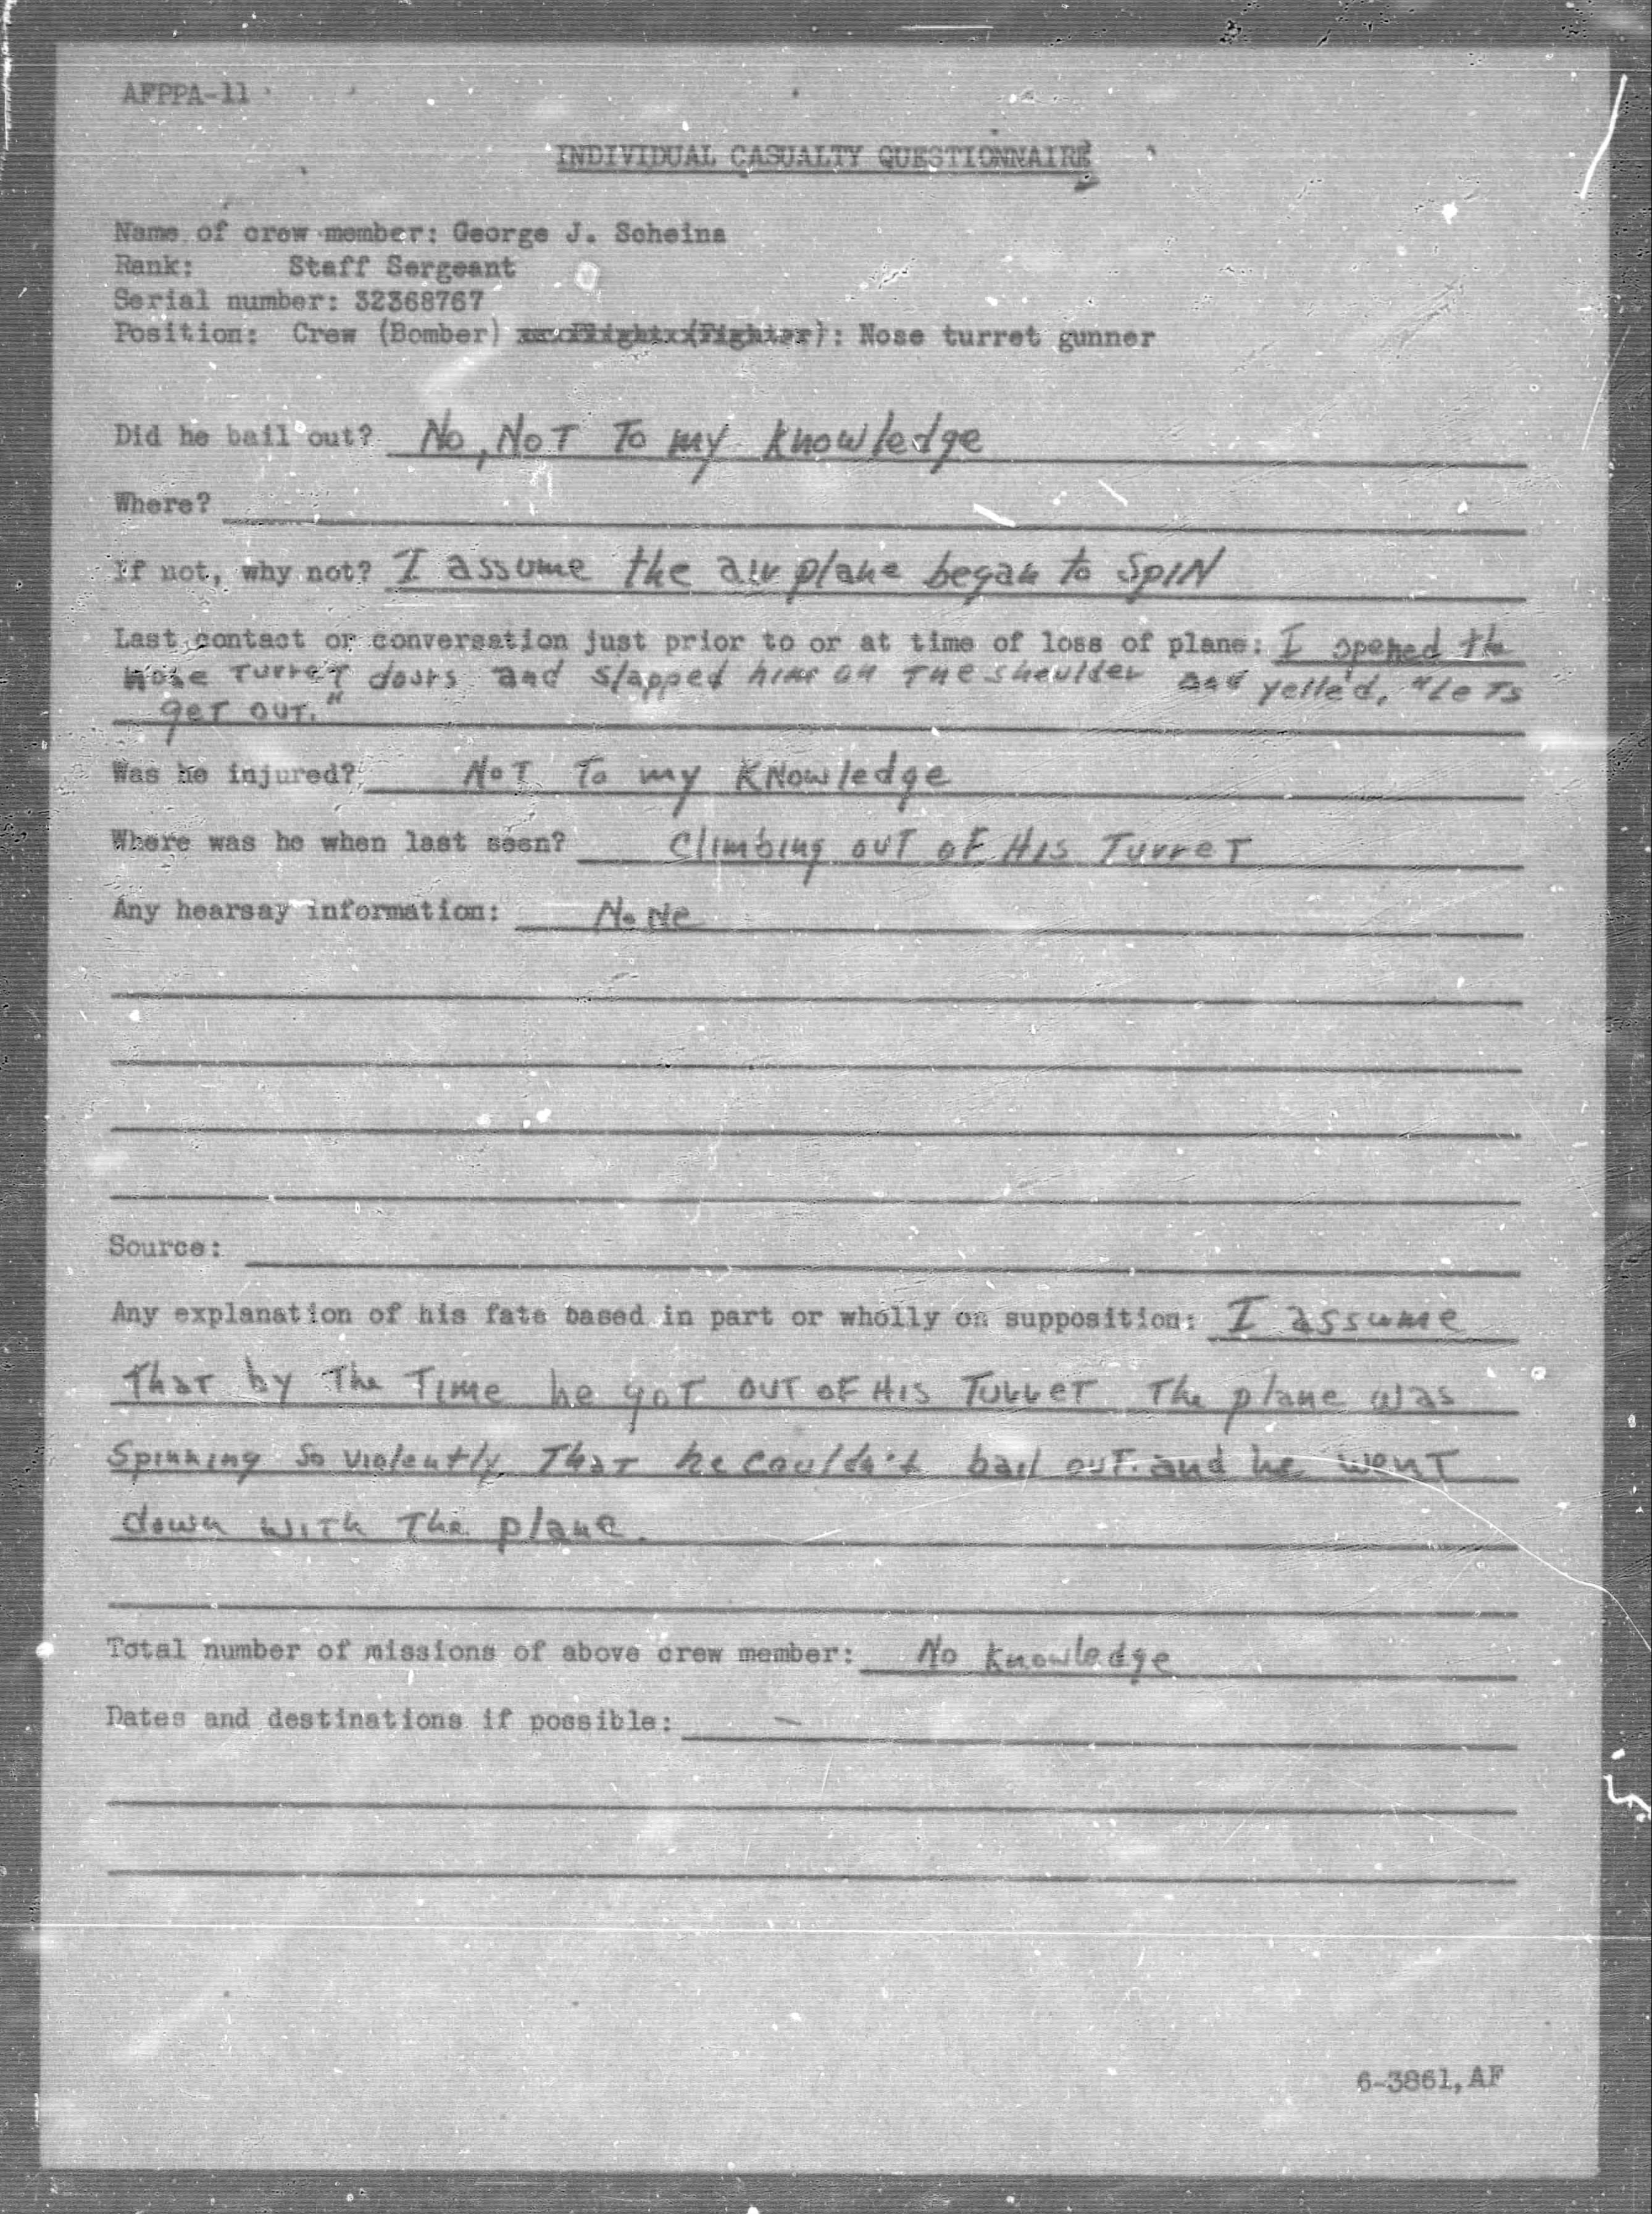 AFPPA-11
INDIVIDUAL CASUALTY QUESTIONNAIRE
Name of crew member: George J. Scheina
Rank: Staff Sergeant
Serial number: 32368767
Position: Crew (Bomber) (Fighter): Nose turret gunner
Did he bail out? No, Not To my knowledge
Where?
If not, why not? I assume the airplane began to SPIN
Last contact or conversation just prior to or at time of loss of plane: I opened the
nose Turret doors and slapped him on The shoulder and yelled, "Lets
get out."
Was he injured? Not To my KNowledge
Where was he when last seen? Climbing out of His Turret
Any hearsay information: NoNe
Source:
Any explanation of his fate based in part or wholly on supposition: I assume
That by The Time he got out of His Turret The plane was
Spinning so violently That he couldn't bail out and he went
down with The plane.
Total number of missions of above crew member: No knowledge
Dates and destinations if possible: -
6-3861,AF